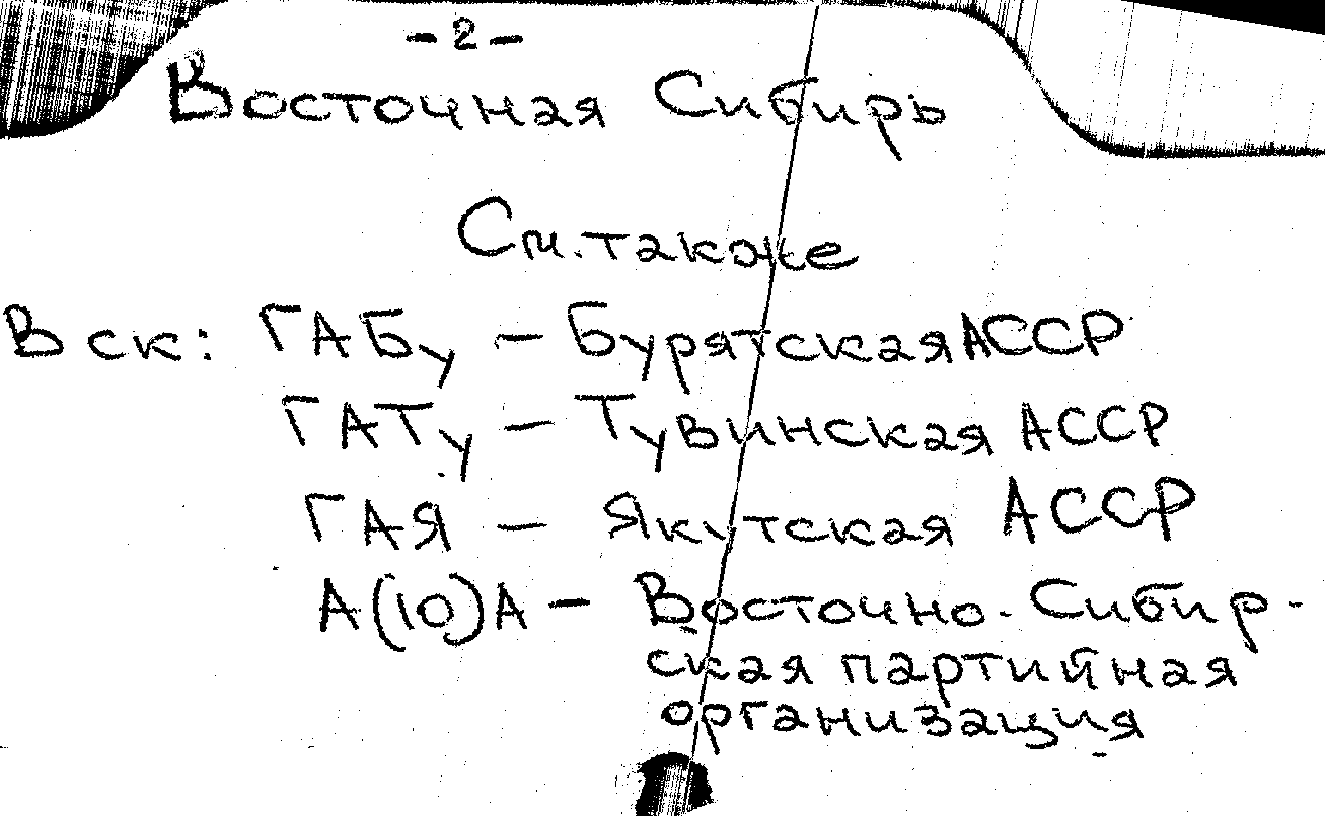 - 2 -
Восточная Сибирь
См. также
В ск: ГАБу - Бурятская АССР
ГАТу - Тувинская АССР
ГАЯ - Якутская АССР
А(10)А - Восточно-Сибир-
ская партийная
организация